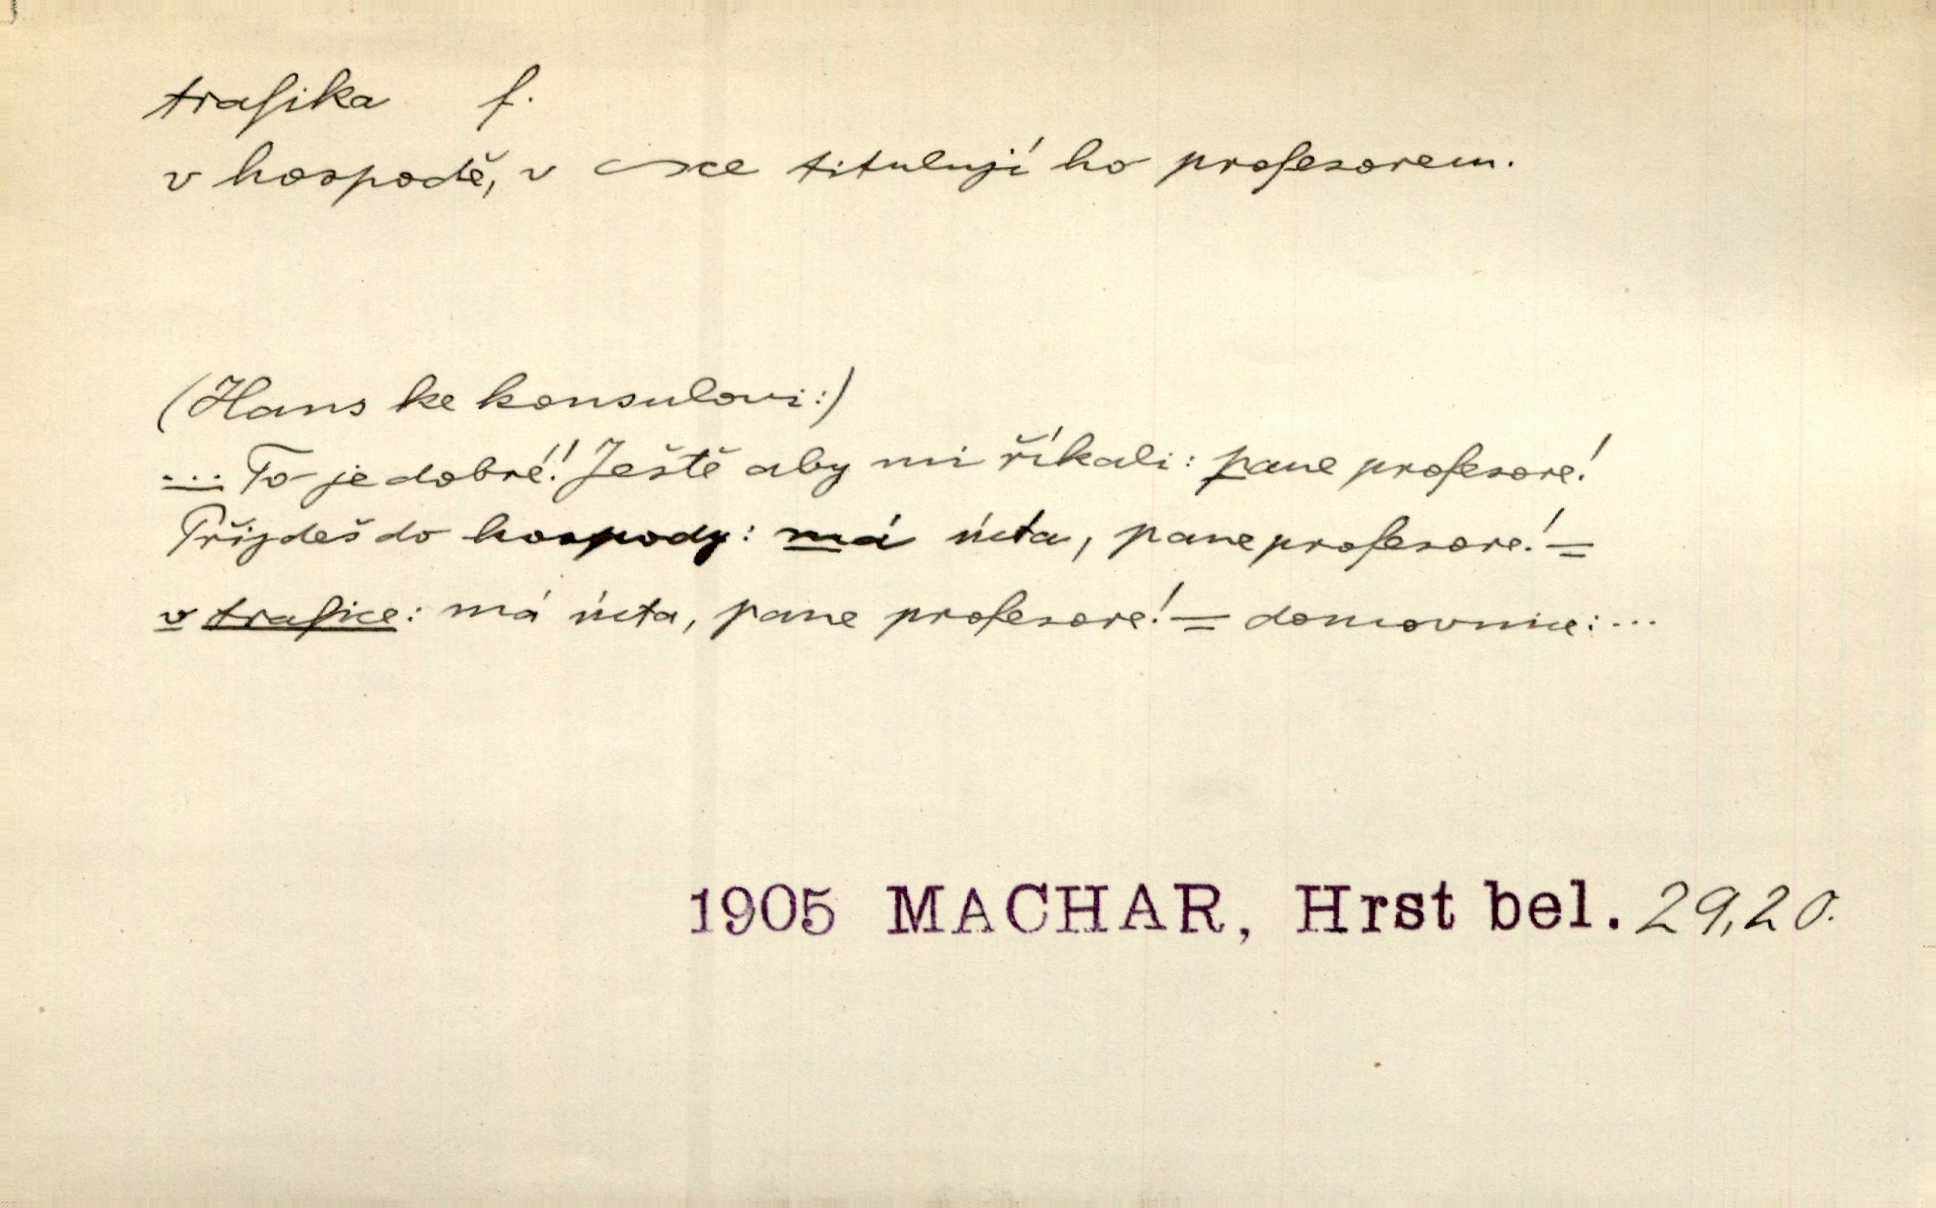 trafika f.
v hospodě, v ~ce titulují ho profesorem.
(Hans ke konsulovi:)
... To je dobré! Ještě aby mi říkali: pane profesore!
Přijdeš do hospody: má úcta, pane profesore! =
v trafice: má úcta, pane profesore! = domovnice: ...
1905 MACHAR, Hrst bel. 29,20.